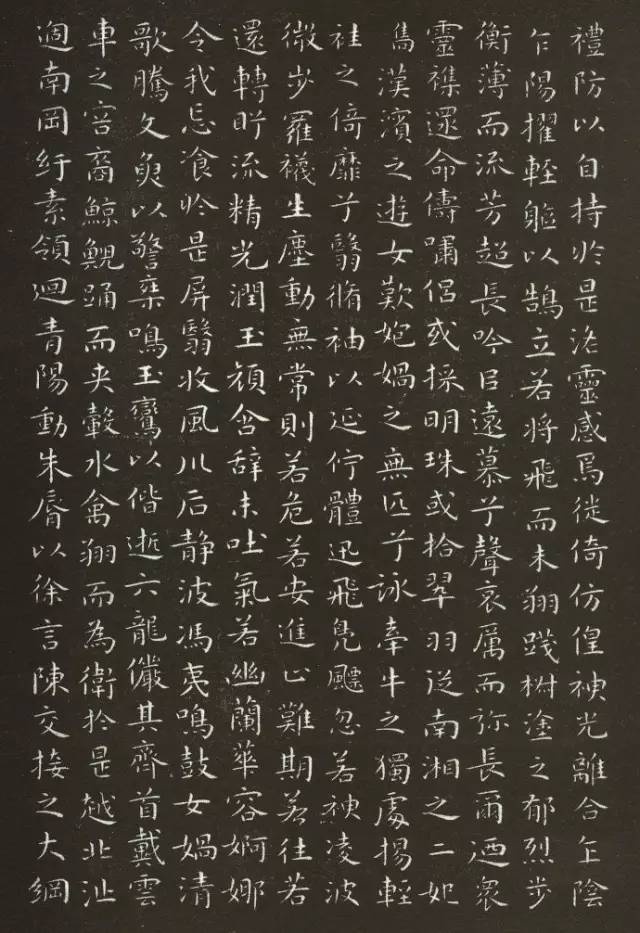 禮防以自持於是洛靈感焉徙倚仿偟神光離合乍陰
乍陽擢輕軀以鵠立若將飛而未翔踐椒塗之郁烈步
衡薄而流芳超長吟以遠慕兮聲哀厲而弥長爾迺衆
靈襍遝命儔嘯侶或採明珠或拾翠羽從南湘之二妃
攜漢濱之遊女歎匏媧之無匹兮詠牽牛之獨處揚輕
袿之倚靡兮翳脩袖以延佇體迅飛鳧飄忽若神凌波
微步羅襪生塵動無常則若危若安進止難期若往若
還轉眄流精光潤玉顏含辞未吐氣若幽蘭華容婀娜
令我忘飡於是屏翳收風川后静波馮夷鳴鼓女媧清
歌騰文魚以警乘鳴玉鸞以偕逝六龍儼其齊首戴雲
車之容裔鯨鯢踊而夾轂水禽翔而為衛於是越北沚
過南岡紆素領迴青陽動朱脣以徐言陳交接之大綱